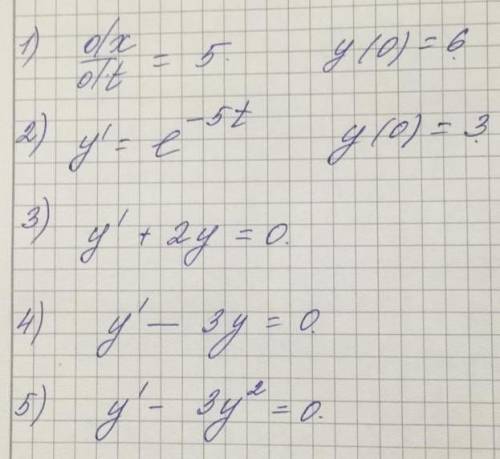 1) dx/dt = 5. y(0) = 6.
2) y' = e^{-5t} y(0) = 3.
3) y' + 2y = 0.
4) y' - 3y = 0.
5) y' - 3y² = 0.